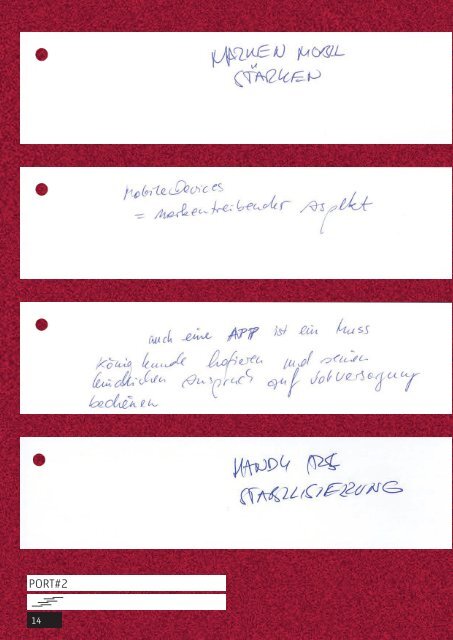 MARKEN MOBIL
STÄRKEN
Mobile Devices
= markentreibender Aspekt
auch eine APP ist ein Muss
König Kunde hofieren und seinen
kindlichen Anspruch auf Vollversorgung
bedienen
HANDY ALS
STABILISIERUNG
PORT#2
14